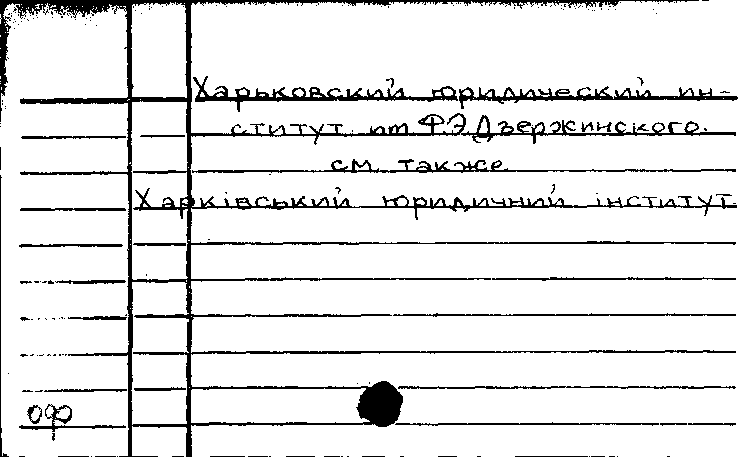 Харьковский юридический ин-
ститут им Ф.Э Дзержинского.
см. также
Харкiвський юридичний iнститут
офр